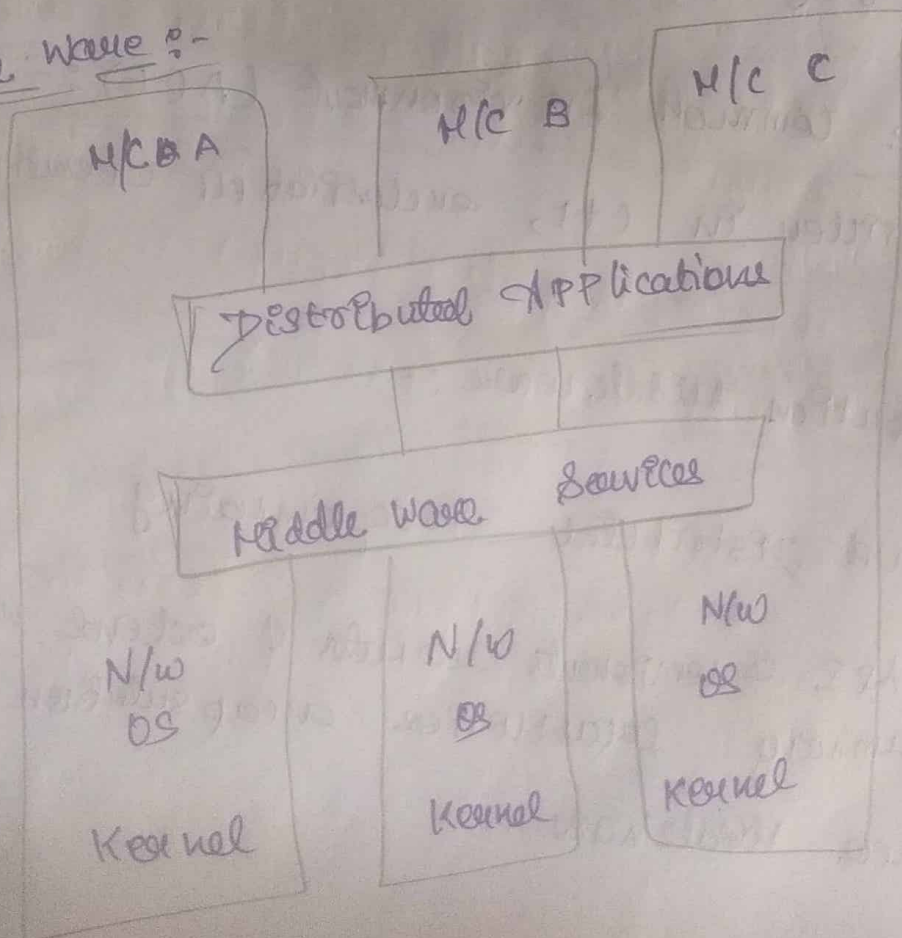 Ware :-
M/C A
M/C B
M/C C
Distributed Applications
Middle Ware Services
N/W
OS
Kernel
N/W
OS
Kernel
N/W
OS
Kernel